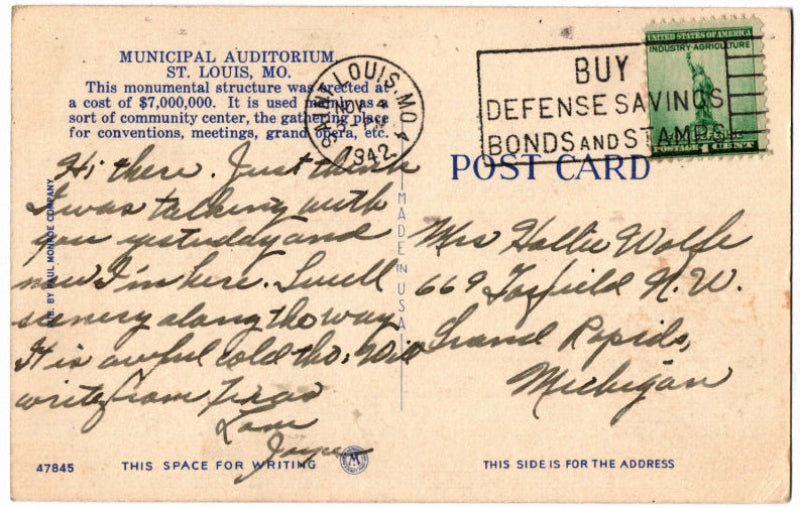 MUNICIPAL AUDITORIUM,
ST. LOUIS, MO.
This monumental structure was erected at
a cost of $7,000,000. It is used mainly as a
sort of community center, the gathering place
for conventions, meetings, grand opera, etc.
SAINT LOUIS, MO.
NOV 4
PM
1942
BUY
DEFENSE SAVINGS
BONDS AND STAMPS
UNITED STATES OF AMERICA
INDUSTRY·AGRICULTURE
POSTAGE 1 CENT
POST CARD
Hi there. Just think
I was talking with
you yesterday and
now I'm here. Swell
scenery along the way.
It is awful cold tho. Will
write from Texas
Love
Mrs Hollie Wolfe
669 N.W.
Grand Rapids,
Michigan
PUB. BY PAUL MONROE COMPANY
MADE IN USA
47845
THIS SPACE FOR WRITING
THIS SIDE IS FOR THE ADDRESS